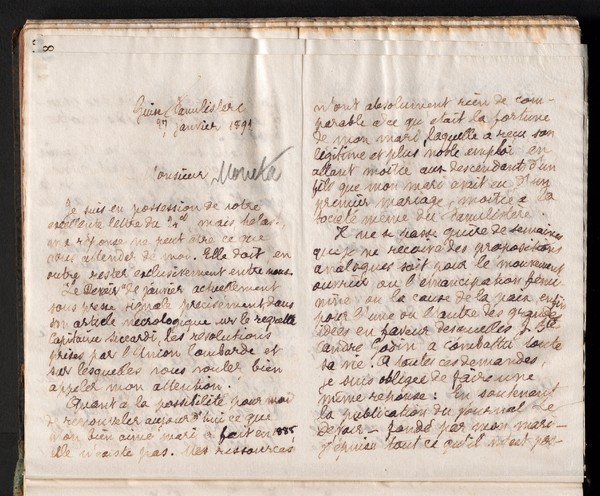 8
Guise, Familistère
27 janvier 1891
Monsieur Moneta
Je suis en possession de votre
excellente lettre du 24 mais hélas,
ma réponse ne peut être ce que
vous attendez de moi. Elle doit en
outre rester exclusivement entre nous.
Le Devoir de janvier actuellement
sous presse signale précisément, dans
son article nécrologique sur le regretté
Capitaine Siccardi, les résolutions
prises par l'Union lombarde et
sur lesquelles vous voulez bien
appeler mon attention.
Quant à la possibilité pour moi
de renouveler aujourd'hui ce que
mon bien aimé mari a fait en 1885
elle n'existe pas. Mes ressources
n'ont absolument rien de com-
parable à ce qu'était la fortune
de mon mari, laquelle a reçu son
légitime et plus noble emploi en
allant moitié aux descendants d'un
fils que mon mari avait eu d'un
premier mariage, moitié à la
Société même du Familistère.
Il ne se passe guère de semaines
que je ne reçoive des propositions
analogues soit pour le mouvement
ouvrier ou l'émancipation fémi-
nine ou la cause de la paix, enfin
pour l'une ou l'autre des grandes
idées en faveur desquelles J. Bte
André Godin a combattu toute
sa vie. A toutes ces demandes
je suis obligée de faire une
même réponse: En soutenant
la publication du journal Le
Devoir - fondé par mon mari -
j'épuise tout ce qu'il m'est pos-